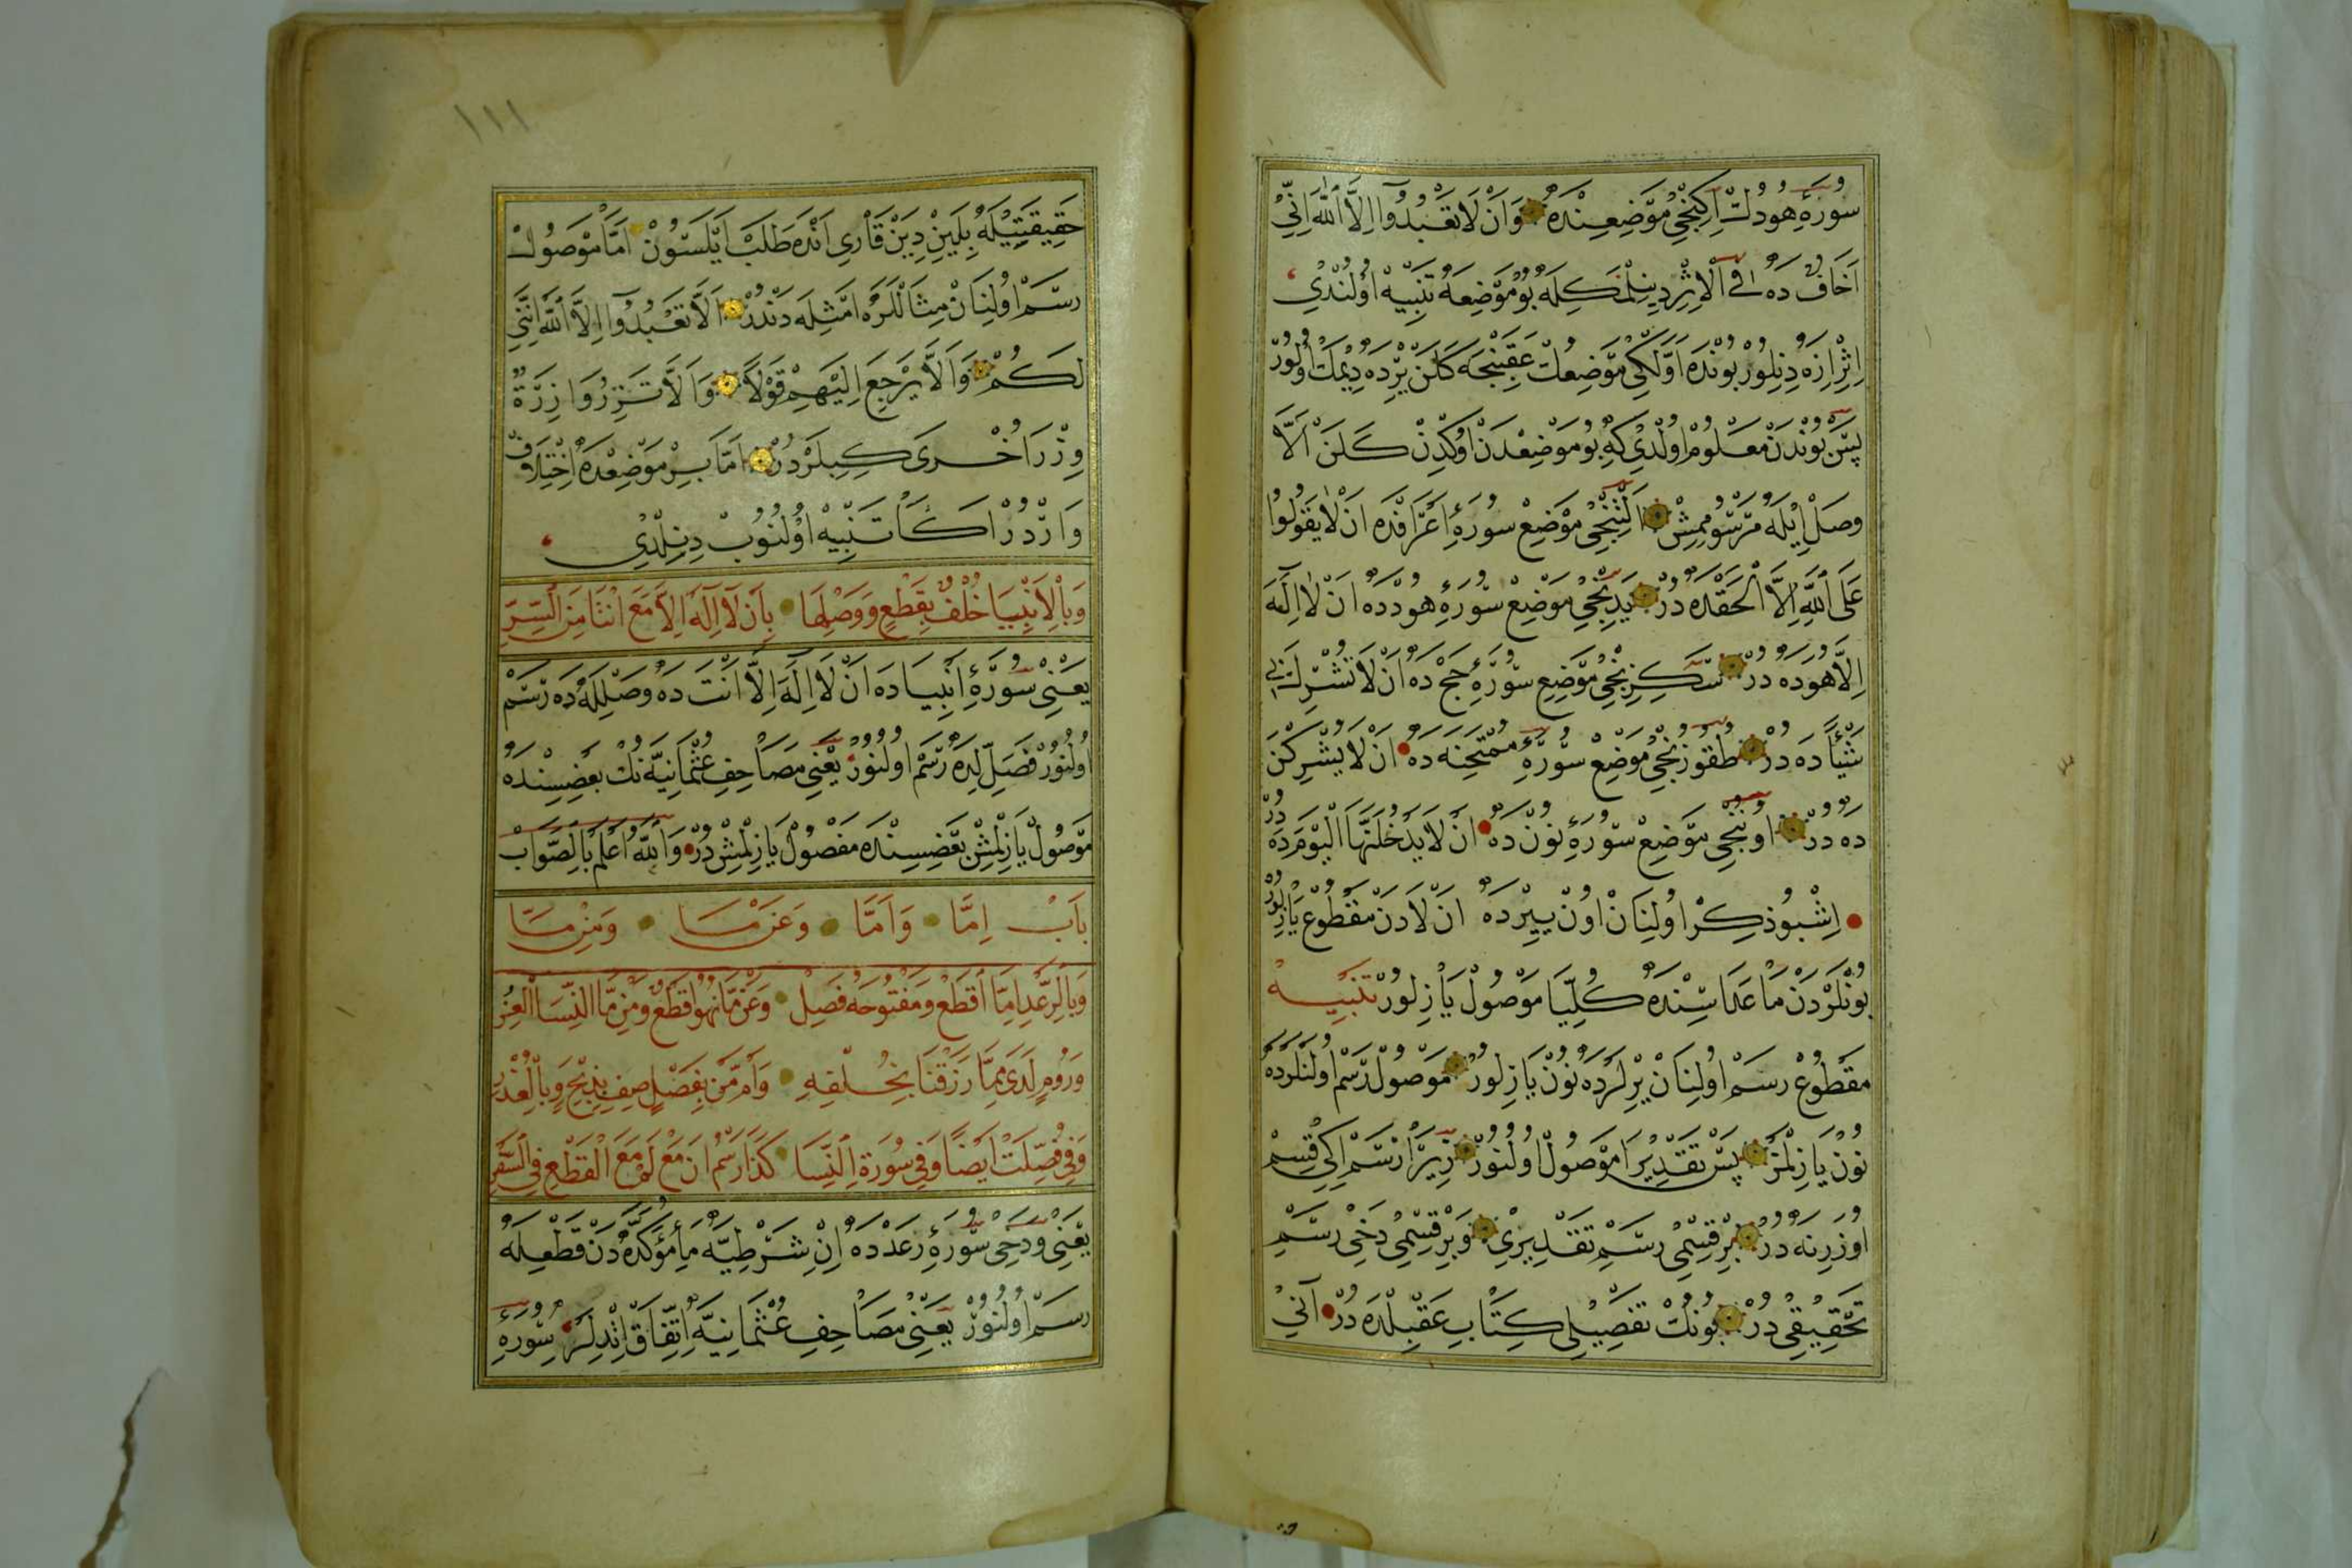 سُورَۀِ هُودُكْ اِكِنْجِى مَوْضِعِنْدَه وَاَنْ لَا تَعْبُدُوٓا اِلَّا اللّٰهَ اِنِّىٓ
اَخَافُ دَه فِى الْاِثْرِ دِينِلْمَكِلَه بُو مَوْضِعَه تَنْبِيهْ اُولُنْدِى
اِثْرْ اِزَه دِنِلُورْ بُونْدَه اَوَّلْكِى مَوْضِعُكْ عَقِبِنْجَه كَلَنْ يِرْدَه دِيمَكْ اُولُورْ
پَسْ بُونْدَنْ مَعْلُومْ اُولْدِى كِه بُو مَوْضِعْدَنْ اُوكْدِنْ كَلَنْ اَلَّا
وَصْلِ اِيلَه مَرْسُومِمِشْ اَلْتِنْجِى مَوْضِعْ سُورَۀِ اَعْرَافْدَه اَنْ لَا يَقُولُوا
عَلَى اللّٰهِ اِلَّا الْحَقَّدَه دُرْ يَدِنْجِى مَوْضِعْ سُورَۀِ هُودْدَه اَنْ لَا اِلٰهَ
اِلَّا هُوَدَه دُرْ سَكِزِنْجِى مَوْضِعْ سُورَۀِ حَجْدَه اَنْ لَا تُشْرِكْ بِى
شَيْئًا دَه دُرْ طُقُوزُنْجِى مَوْضِعْ سُورَۀِ مُمْتَحِنَه دَه اَنْ لَا يُشْرِكْنَ
دَه دُرْ اُونُنْجِى مَوْضِعْ سُورَۀِ نُونْ دَه اَنْ لَا يَدْخُلَنَّهَا الْيَوْمَ دَه دُرْ
اِشْبُو ذِكِرْ اُولِنَانْ اُونْ يِيرْدَه اَنْ لَادَنْ مَقْطُوعْ يَازِلُورْ
بُونْلَرْدَنْ مَا عَدَاسِنْدَه كُلِّيًّا مَوْصُولْ يَازِلُورْ تَنْبِيهْ
مَقْطُوعْ رَسْمْ اُولِنَانْ يِرْلَرْدَه نُونْ يَازِلُورْ مَوْصُولْ رَسْمْ اُولُنَنْلَرْدَه
نُونْ يَازِلْمَزْ پَسْ تَقْدِيرًا مَوْصُولْ اُولُنُورْ زِيرَا رَسْمْ اِكِى قِسْمْ
اُوزَرِنَه دُرْ بِرْ قِسْمِى رَسْمِ تَقْدِيرِى وَبِرْ قِسْمِى دَخِى رَسْمِ
تَحْقِيقِى دُرْ بُونُكْ تَفْصِيلِى كِتَابِ عَقِيلَه دَه دُرْ آنِى
١١١
حَقِيقَتِيلَه بِلَيِنْ دِيَنْ قَارِى اَنْدَه طَلَبْ اَيْلَسُونْ اَمَّا مَوْصُولْ
رَسْمْ اُولِنَانْ مِثَالْلَرَه اَمْثِلَه دَنْدُرْ اَلَّا تَعْبُدُوٓا اِلَّا اللّٰهَ اِنَّنِى
لَكُمْ وَاَلَّا يَرْجِعُ اِلَيْهِمْ قَوْلًا وَاَلَّا تَزِرُ وَازِرَةٌ
وِزْرَ اُخْرَى كِبِيلَرْدُرْ اَمَّا بِرْ مَوْضِعْدَه اِخْتِلَافْ
وَارْدُرْ اَكَا تَنْبِيهْ اُولُنُوبْ دِنِلْدِى
وَبِالْاَنْبِيَا خُلْفٌ بِقَطْعٍ وَوَصْلِهَا بِاَنْ لَآ اِلٰهَ اِلَّا مَعَ اَنْتَ مِنَ السِّرِّ
يَعْنِى سُورَۀِ اَنْبِيَادَه اَنْ لَا اِلٰهَ اِلَّا اَنْتَ دَه وَصْلِلَه دَه رَسْمْ
اُولُنُورْ فَصْلِلَه دَه رَسْمْ اُولُنُورْ يَعْنِى مَصَاحِفِ عُثْمَانِيَّه نُكْ بَعْضِسِنْدَه
مَوْصُولْ يَازِلْمِشْ بَعْضِسِنْدَه مَفْصُولْ يَازِلْمِشْدُرْ وَاللّٰهُ اَعْلَمُ بِالصَّوَابْ
بَابْ اِمَّا وَاَمَّا وَعَنْ مَا وَمِنْ مَا
وَبِالرَّعْدِ اِمَّا اقْطَعْ وَمَفْتُوحَهُ فَصِلْ وَعَنْ مَا نُهُوا قَطْعٌ وَمِنْ مَّا النِّسَا الْغُرِّ
وَرُومٍ لَدَى مِمَّا رَزَقْنَا بِخُلْفِهِ وَاَمْ مَّنْ بِفَصْلٍ صِفْ بِذِبْحٍ وَبِالْعُذْرِ
وَفِى فُصِّلَتْ اَيْضًا وَفِى سُورَةِ النِّسَا كَذَا رَسْمُ اَنْ مَعْ لَمْ مَعَ الْقَطْعِ فِى السَّفْرِ
يَعْنِى وَدَخِى سُورَۀِ رَعْدْدَه اِنْ شَرْطِيَّه مَاءِ مُؤَكِّدَه دَنْ قَطْعِلَه
رَسْمْ اُولُنُورْ يَعْنِى مَصَاحِفِ عُثْمَانِيَّه اِتِّفَاقْ اِتْدِلَرْ سُورَۀِ